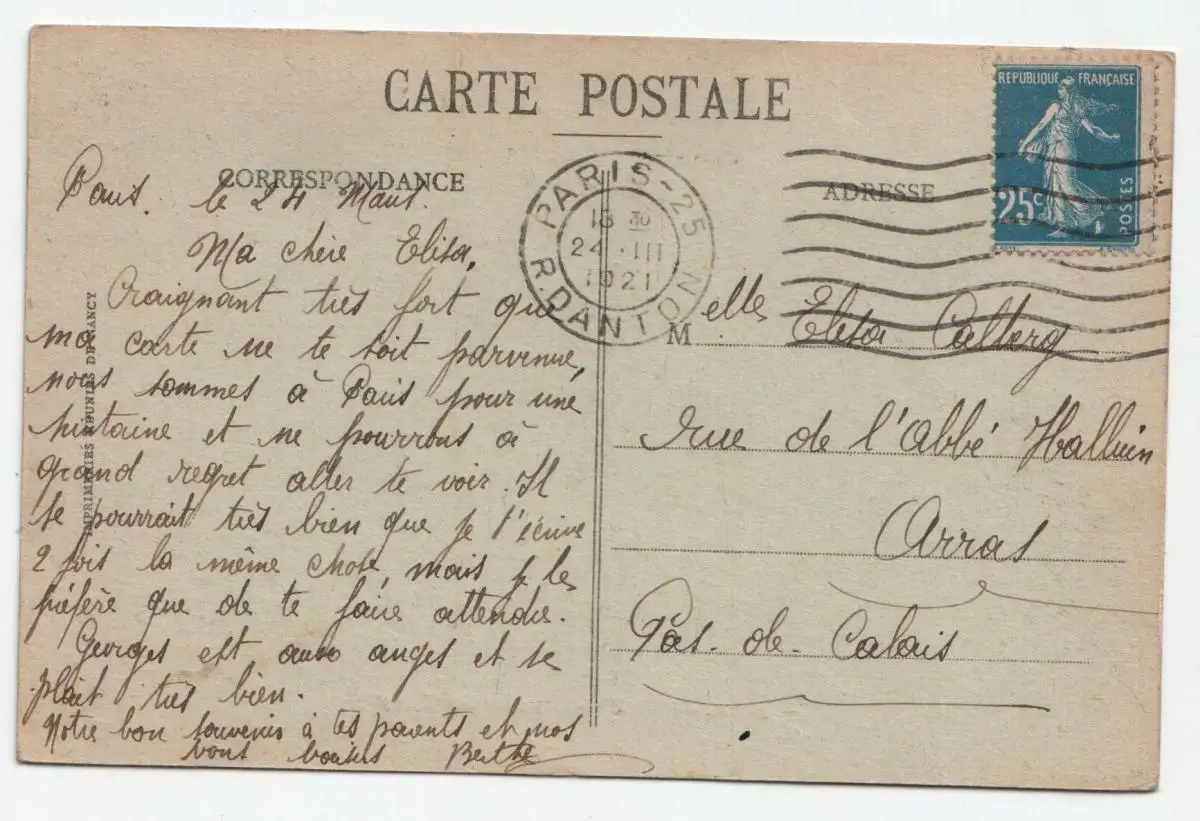 CARTE POSTALE
CORRESPONDANCE
ADRESSE
REPUBLIQUE FRANÇAISE
25c
POSTES
PARIS-25
R. DANTON
18 30
24 - III
1921
IMPRIMERIES REUNIES DE NANCY
Paris. le 24 Mars.
Ma chère Elisa,
Craignant très fort que
ma carte ne te soit parvenue,
nous sommes à Paris pour une
huitaine et ne pourrons à
grand regret aller te voir. Il
se pourrait très bien que je t'écrive
2 fois la même chose mais je
préfère que de te faire attendre.
Georges est aux anges et se
plait très bien.
Notre bon souvenir à tes parents et nos
bons baisers Berthe
Melle Elisa
rue de l'abbé Halluin
Arras
Pas-de-Calais